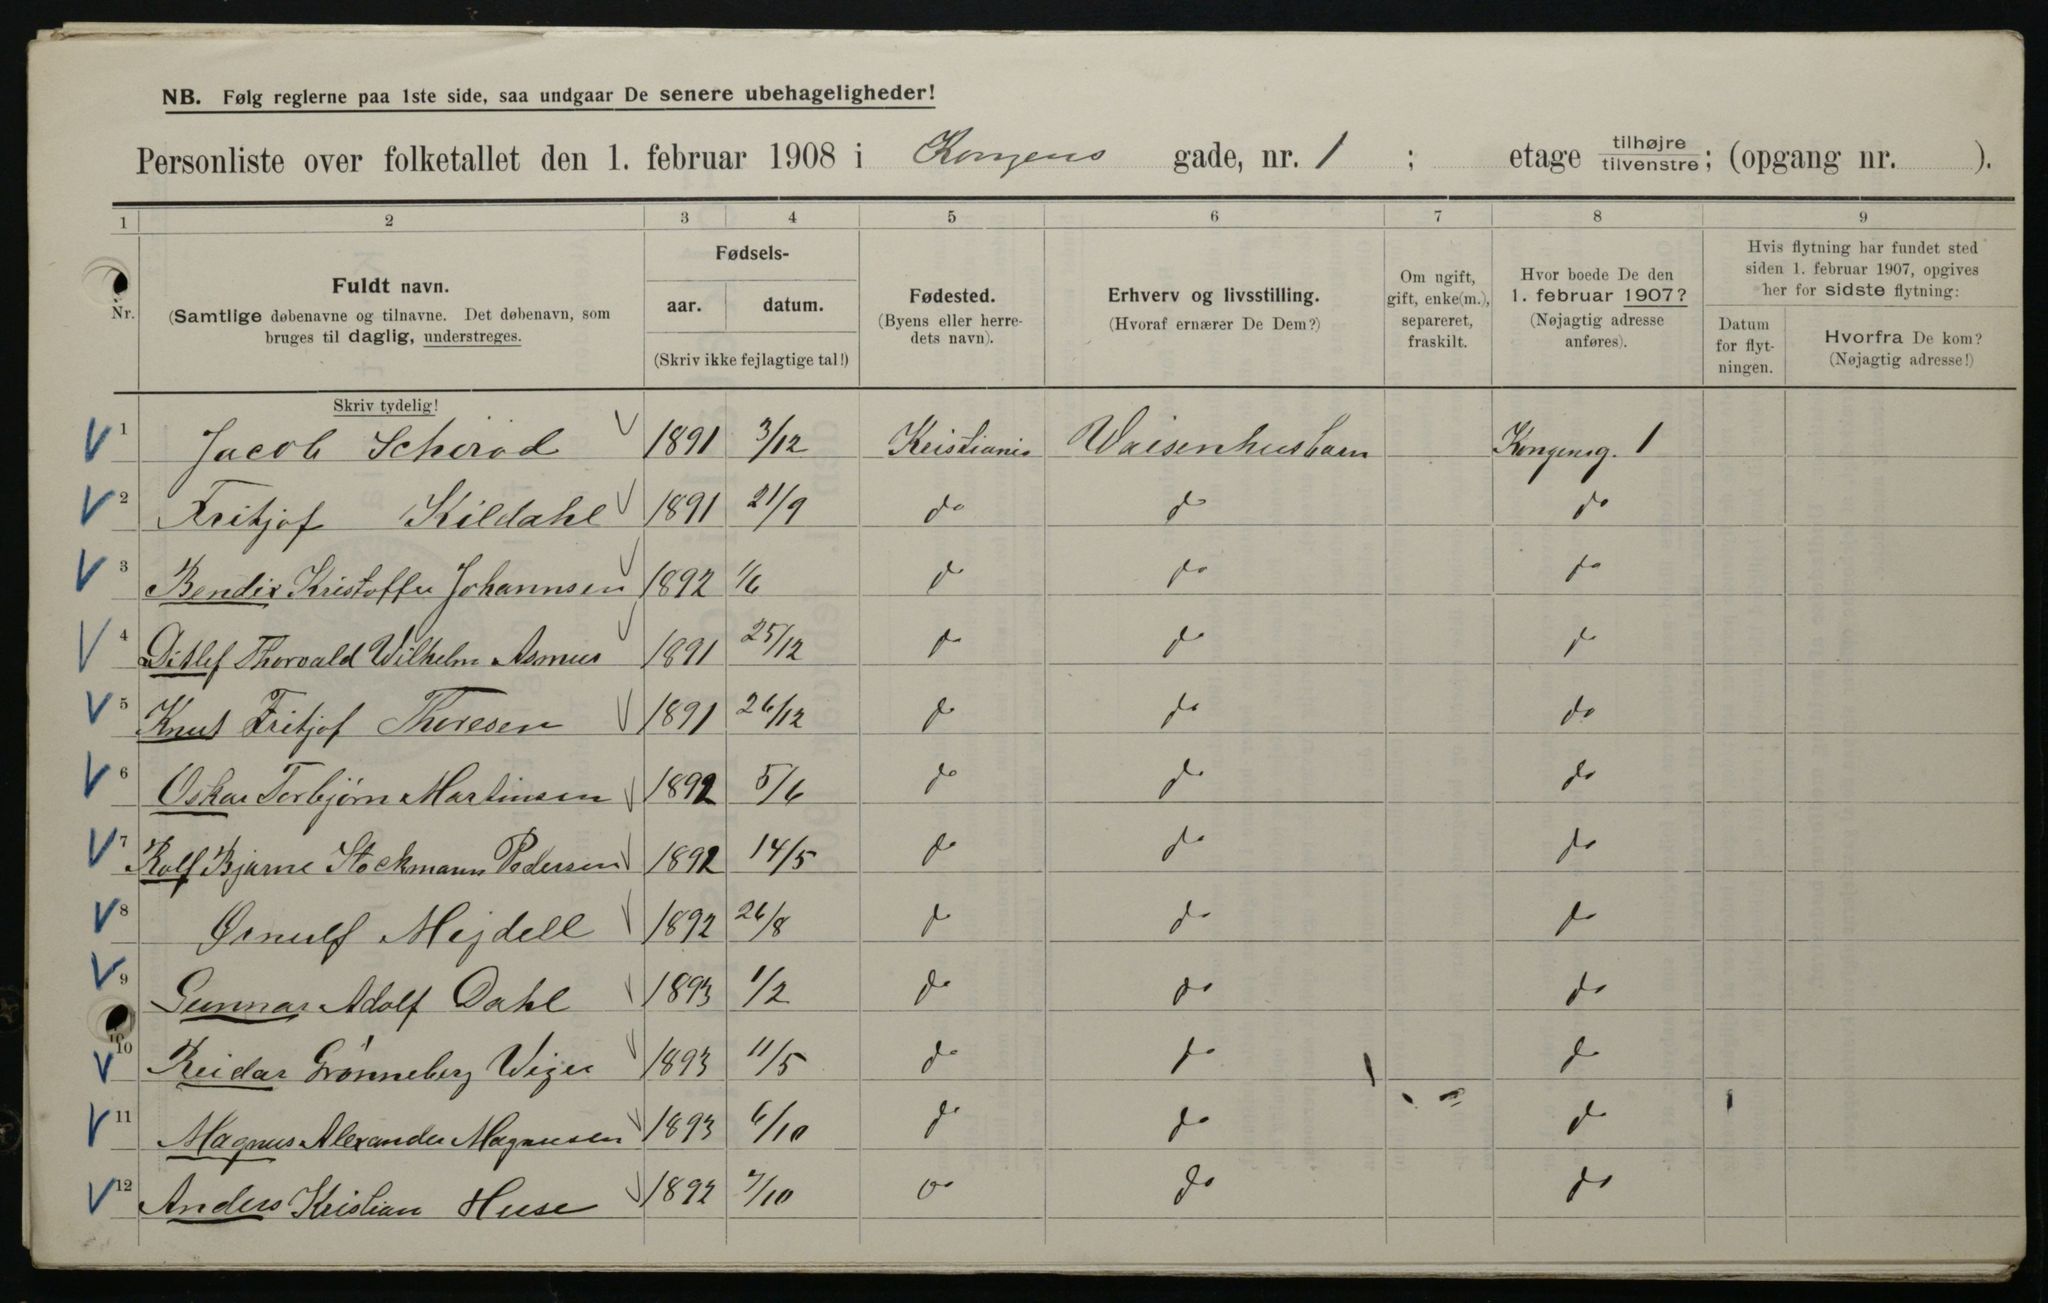 NB. Følg reglerne paa 1ste side, saa undgaar De senere ubehageligheder!
Personliste over folketallet den 1. februar 1908 i Kongens gade, nr. 1 ; etage tilhøjre tilvenstre; (opgang nr. ).
1 2 3 4 5 6 7 8 9
Nr.
Fuldt navn.
(Samtlige døbenavne og tilnavne. Det døbenavn, som
bruges til daglig, understreges.
Skriv tydelig!
Fødsels-
aar. datum.
(Skriv ikke fejlagtige tal!)
Fødested.
(Byens eller herre-
dets navn).
Erhverv og livsstilling.
(Hvoraf ernærer De Dem?)
Om ugift,
gift, enke(m.),
separeret,
fraskilt.
Hvor boede De den
1. februar 1907?
(Nøjagtig adresse
anføres).
Hvis flytning har fundet sted
siden 1. februar 1907, opgives
her for sidste flytning:
Datum
for flyt-
ningen.
Hvorfra De kom?
(Nøjagtig adresse!)
1 Jacob Schirød 1891 3/12 Kristiania Waisenhusbarn Kongensg. 1
2 Fritjof Kildahl 1891 21/9 do do do
3 Bendix Kristoffer Johannsen 1892 1/6 do do do
4 Ditlef Thorvald Wilhelm Asmus 1891 25/12 do do do
5 Knut Fritjof Thoresen 1891 26/12 do do do
6 Oskar Torbjørn Martinsen 1892 5/6 do do do
7 Rolf Bjarne Stockmann Pedersen 1892 14/5 do do do
8 Ørnulf Mejdell 1892 26/8 do do do
9 Gunnar Adolf Dahl 1893 1/2 do do do
10 Reidar Grønneberg 1893 11/5 do do do
11 Magnus Alexander Magnusen 1893 6/10 do do do
12 Anders Kristian Huse 1892 7/10 do do do